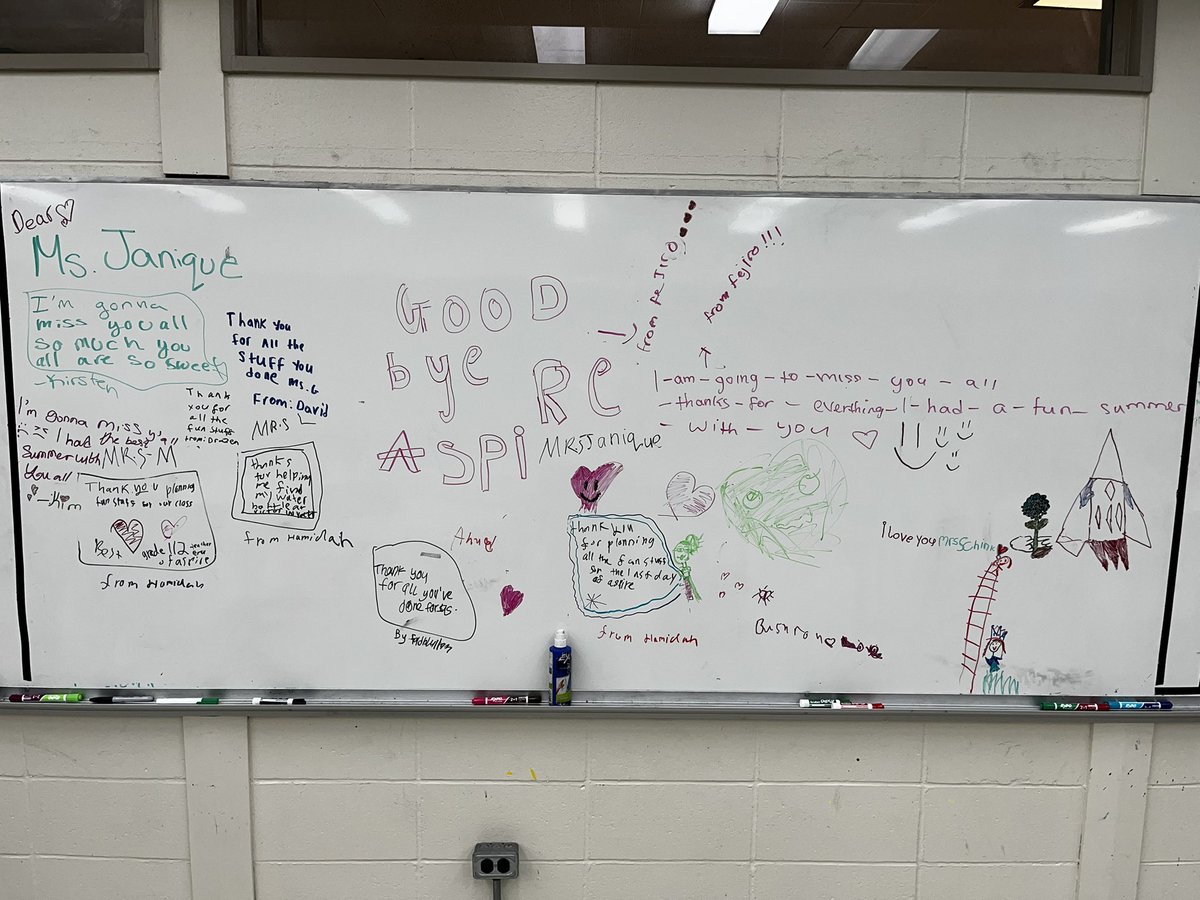 Dear
Ms. Janique
I'm gonna
miss you all
so much you
all are so sweet
-Kirsten
Thank you
for all the
stuff you
done Ms. G
From: David
Thank
you for
all the
fun stuff
I'm gonna miss y'all
I had the best
summer with
you all
-Kim
MRS-M
MR.S
Thank you planning
fun stuff for our class
Best grade 1/2 teacher
of aspire
from Hamidah
thanks
for helping
me find
my water
bottle
from Hamidah
GOOD
bye RE
ASPI
from FEJIRO
from Fejiro!!!
I-am-going-to-miss-you-all
-thanks-for-everthing-I-had-a-fun-summer
-with-you
MRS Janique
Thank you
for all you've
done for us.
By
thank you
for planning
all the fun stuff
on the last day
of aspire
from Hamidah
I love you Mrs Schink
EXPO